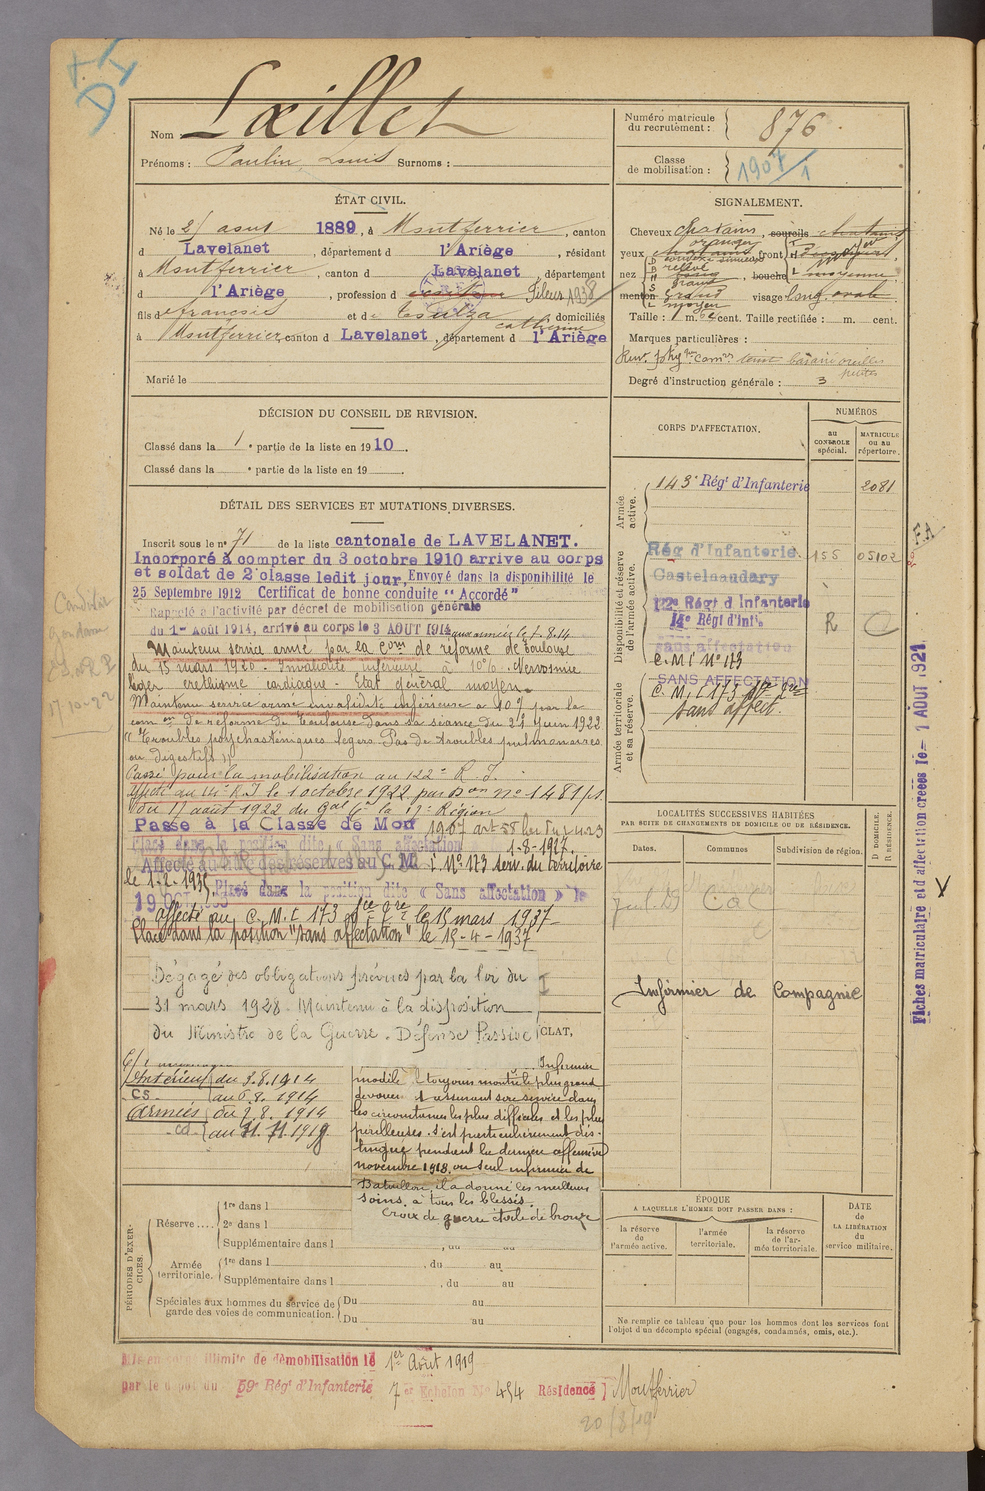 Nom : Lœillet
Numéro matricule du recrutement : 876
Prénoms : Paulin Louis Surnoms :
Classe de mobilisation : 1907/1
ÉTAT CIVIL.
Né le 25 août 1889, à Montferrier, canton
d Lavelanet, département d l'Ariège, résidant
à Montferrier, canton d Lavelanet, département
d l'Ariège, profession d Fileur 1938
fils d François et de domiciliés
Catherine
à Montferrier canton d Lavelanet, département d l'Ariège
Marié le
SIGNALEMENT.
Cheveux chatains, sourcils chatains
yeux front
nez bouche moyenne
menton visage long ovale
Taille : 1 m. cent. Taille rectifiée : m. cent.
Marques particulières :
teint basané oreilles
petites
Degré d'instruction générale : 3
DÉCISION DU CONSEIL DE REVISION.
Classé dans la 1e partie de la liste en 1910.
Classé dans la e partie de la liste en 19
DÉTAIL DES SERVICES ET MUTATIONS DIVERSES.
Inscrit sous le n° 71 de la liste cantonale de LAVELANET.
Incorporé à compter du 3 octobre 1910 arrive au corps
et soldat de 2e classe ledit jour, Envoyé dans la disponibilité le
25 Septembre 1912 Certificat de bonne conduite "Accordé"
Rappelé à l'activité par décret de mobilisation générale
du 1er Août 1914, arrivé au corps le 3 AOUT 1914 aux armées le 7.8.14
Maintenu service armé par la Com on de réforme de Toulouse
du 15 mars 1920. Invalidité inférieure à 10 %. Nervosisme
léger eréthisme cardiaque - Etat général moyen.
Maintenu service armé invalidité inférieure à 10 % par la
com on de réforme de Toulouse dans sa séance du 21 Juin 1922
"Troubles psychasténiques légers. Pas de troubles pulmonaires
ou digestifs"
Passé pour la mobilisation au 122e R.I.
Affecté au 14e R.I le 1 octobre 1922 par D on n° 1481/1
du 17 août 1922 du Gal Ct la 17e Région
Passé à la Classe de Mob 1907 art 58 loi du 1.4.23
Placé dans la position dite « Sans affectation 1-8-1927.
Affecté au titre des réserves au C. M. I. N° 173 serv. du territoire
le 1-2-1935, Placé dans la position dite « Sans affectation » le
19 OCT
affecté au C.M.I 173 le 15 mars 1937
Placé dans la position "sans affectation" le 15-4-1937
Dégagé des obligations prévues par la loi du
31 mars 1928. Maintenu à la disposition
du Ministre de la Guerre. Défense Passive
CLAT,
Intérieur du 3.8.1914
CS. au 6.8.1914
Armées du 7.8.1914
cd. au 11.11.1919
Infirmier
modèle toujours montré le plus grand
dévouement assurant son service dans
les circonstances les plus difficiles et les plus
périlleuses. S'est particulièrement dis-
tingué pendant la dernière offensive
novembre 1918, ou seul infirmier de
Bataillon, il a donné les meilleurs
soins, à tous les blessés.
Croix de guerre étoile de bronze
CORPS D'AFFECTATION.
NUMÉROS
au CONTROLE spécial.
MATRICULE ou au répertoire.
Armée active.
143e Régt d'Infanterie 2081
Disponibilité et réserve de l'armée active.
Rég d'Infanterie. 155 05102
Castelnaudary
122e Régt d Infanterie
14e Régt d'Inf ie R
sans affectation
C. M I N° 173
Armée territoriale et sa réserve.
SANS AFFECTATION
C. M. I 173
sans affect.
LOCALITÉS SUCCESSIVES HABITÉES
PAR SUITE DE CHANGEMENTS DE DOMICILE OU DE RÉSIDENCE.
Dates. Communes Subdivision de région.
D DOMICILE.
R RÉSIDENCE.
Infirmier de Compagnie
ÉPOQUE
A LAQUELLE L'HOMME DOIT PASSER DANS :
la réserve de l'armée active.
l'armée territoriale.
la réserve de l'armée territoriale.
DATE de LA LIBÉRATION du service militaire.
Ne remplir ce tableau que pour les hommes dont les services font
l'objet d'un décompte spécial (engagés, condamnés, omis, etc.).
PÉRIODES D'EXERCICES.
Réserve....
1re dans l
2e dans l
Supplémentaire dans l , du au
Armée territoriale.
1re dans l , du au
Supplémentaire dans l , du au
Spéciales aux hommes du service de
garde des voies de communication.
Du au
Du au
Mis en congé illimité de démobilisation le 1er Août 1919
par le dépôt du 59e Régt d'Infanterie 7e Echelon N° 454 Résidence Montferrier
20/8/19
Fiches matriculaire et d'affectation créées le 1 AOUT 1921
F.A
17-10-22